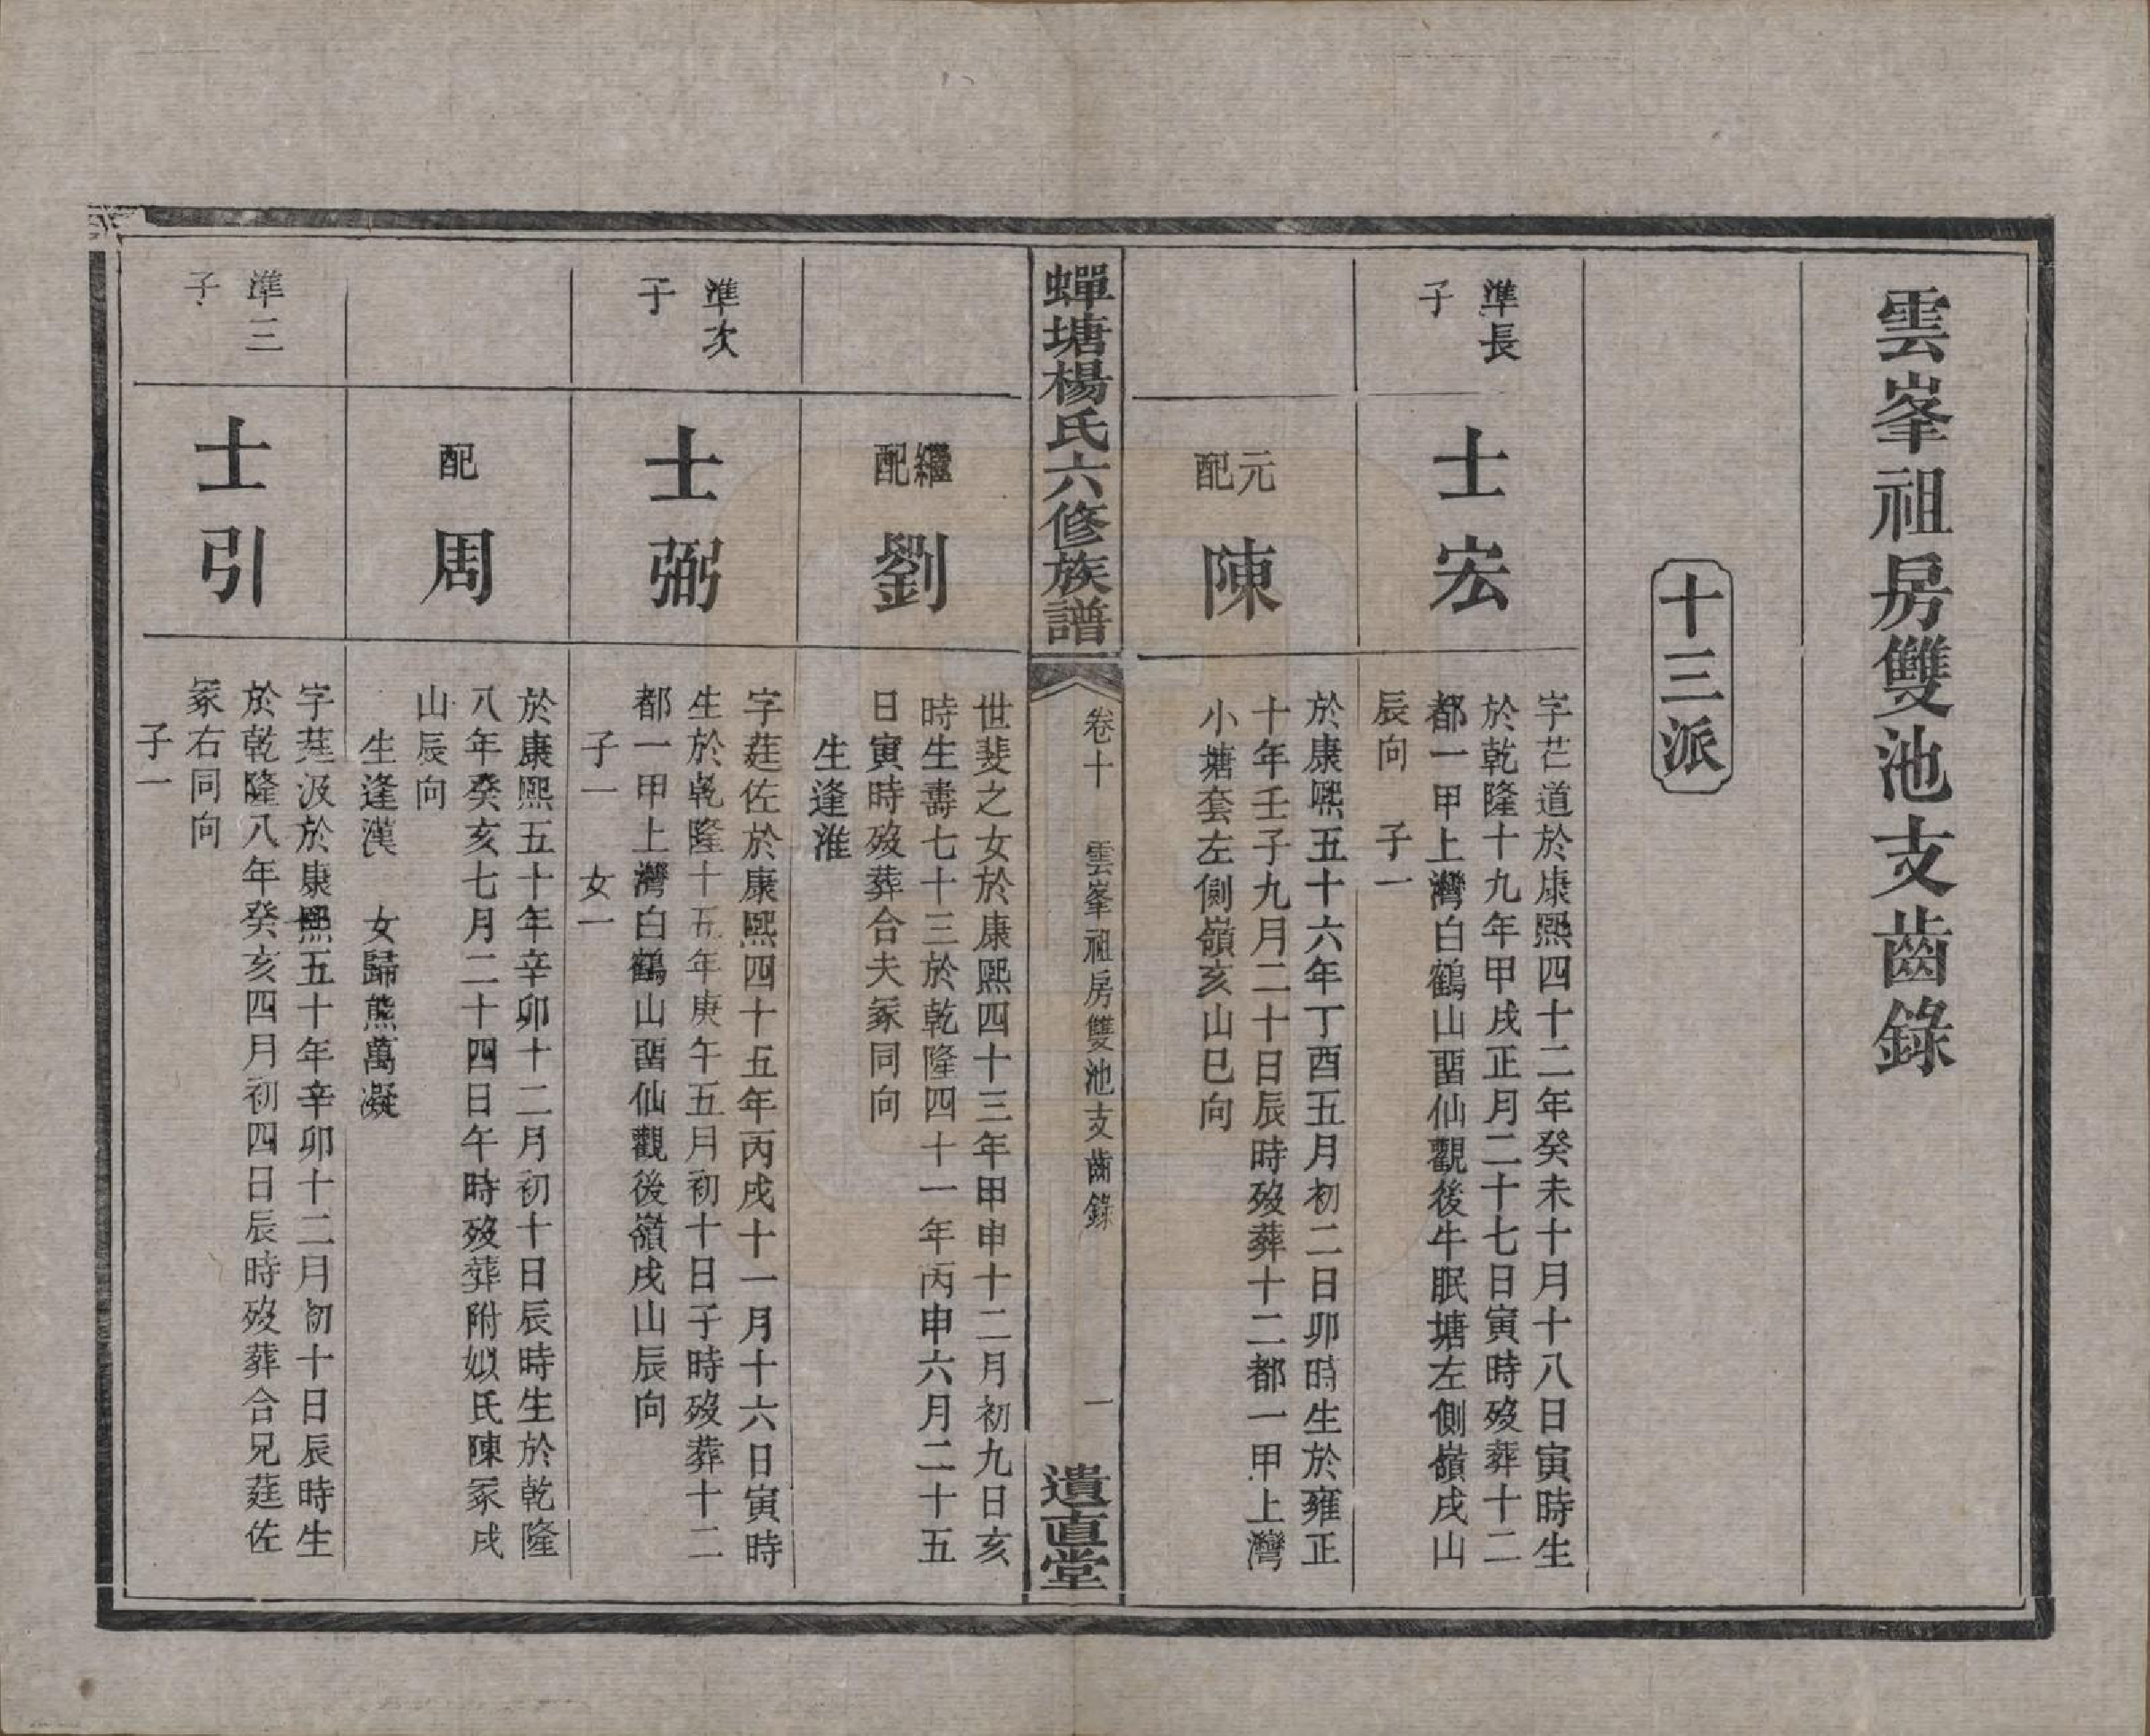 雲峯祖房雙池支齒錄
十三派
準長
子
士宏
字芒道於康熙四十二年癸未十月十八日寅時生
於乾隆十九年甲戌正月二十七日寅時歿葬十二
都一甲上灣白鶴山畱仙觀後牛眠塘左側嶺戌山
辰向　子一
元配　陳
於康熙五十六年丁酉五月初二日卯時生於雍正
十年壬子九月二十日辰時歿葬十二都一甲上灣
小塘套左側嶺亥山巳向
蟬塘楊氏六修族譜
卷十　雲峯祖房雙池支齒錄　一
遺直堂
繼配　劉
世斐之女於康熙四十三年甲申十二月初九日亥
時生壽七十三於乾隆四十一年丙申六月二十五
日寅時歿葬合夫冢同向
生逢淮
準次
子
士弼
字莛佐於康熙四十五年丙戌十一月十六日寅時
生於乾隆十五年庚午五月初十日子時歿葬十二
都一甲上灣白鶴山畱仙觀後嶺戌山辰向
子一　女一
配　周
於康熙五十年辛卯十二月初十日辰時生於乾隆
八年癸亥七月二十四日午時歿葬附姒氏陳冢戌
山辰向
生逢漢　女歸熊萬凝
準三
子
士引
字莛汲於康熙五十年辛卯十二月初十日辰時生
於乾隆八年癸亥四月初四日辰時歿葬合兄莛佐
冢右同向
子一